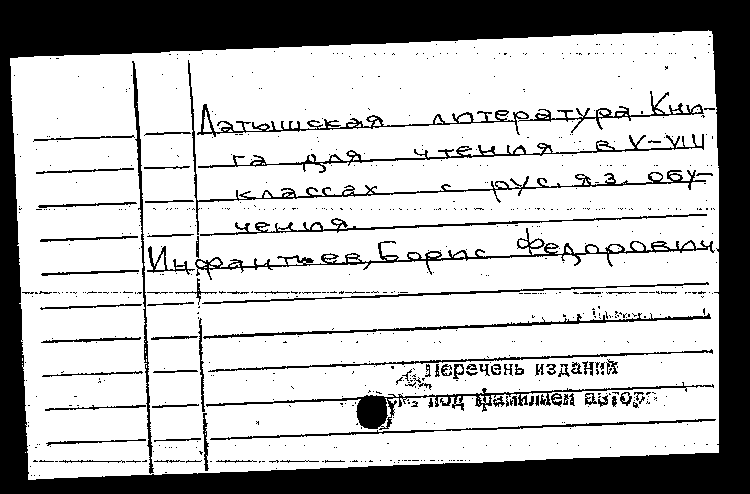 Латышская литература. Кни-
га для чтения в V-VIII
классах с рус. яз. обу-
чения.
Инфантьев, Борис Федорович.
Перечень изданий
см. под фамилией автора